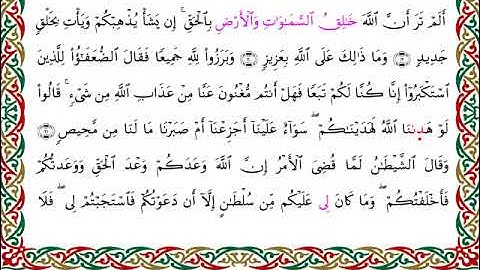 أَلَمْ تَرَ أَنَّ ٱللَّهَ خَٰلِقُ ٱلسَّمَٰوَٰتِ وَٱلْأَرْضِ بِٱلْحَقِّ ۚ إِن يَشَأْ يُذْهِبْكُمْ وَيَأْتِ بِخَلْقٍ
جَدِيدٍ ۝ وَمَا ذَٰلِكَ عَلَى ٱللَّهِ بِعَزِيزٍ ۝ وَبَرَزُوا۟ لِلَّهِ جَمِيعًا فَقَالَ ٱلضُّعَفَٰٓؤُا۟ لِلَّذِينَ
ٱسْتَكْبَرُوٓا۟ إِنَّا كُنَّا لَكُمْ تَبَعًا فَهَلْ أَنتُم مُّغْنُونَ عَنَّا مِنْ عَذَابِ ٱللَّهِ مِن شَىْءٍ ۚ قَالُوا۟
لَوْ هَدَىٰنَا ٱللَّهُ لَهَدَيْنَٰكُمْ ۖ سَوَآءٌ عَلَيْنَآ أَجَزِعْنَآ أَمْ صَبَرْنَا مَا لَنَا مِن مَّحِيصٍ ۝
وَقَالَ ٱلشَّيْطَٰنُ لَمَّا قُضِىَ ٱلْأَمْرُ إِنَّ ٱللَّهَ وَعَدَكُمْ وَعْدَ ٱلْحَقِّ وَوَعَدتُّكُمْ
فَأَخْلَفْتُكُمْ ۖ وَمَا كَانَ لِى عَلَيْكُم مِّن سُلْطَٰنٍ إِلَّآ أَن دَعَوْتُكُمْ فَٱسْتَجَبْتُمْ لِى ۖ فَلَا